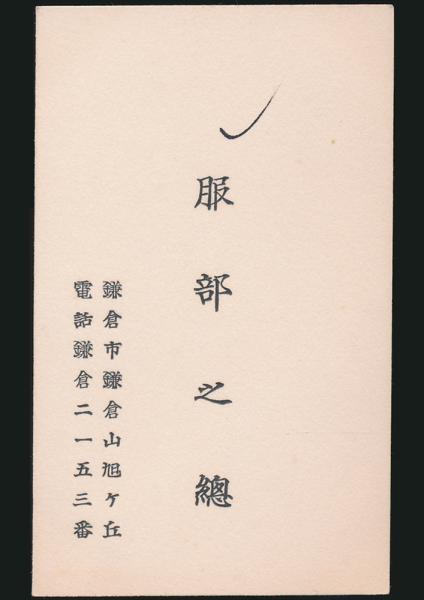 服部之總
鎌倉市鎌倉山旭ケ丘
電話鎌倉二一五三番